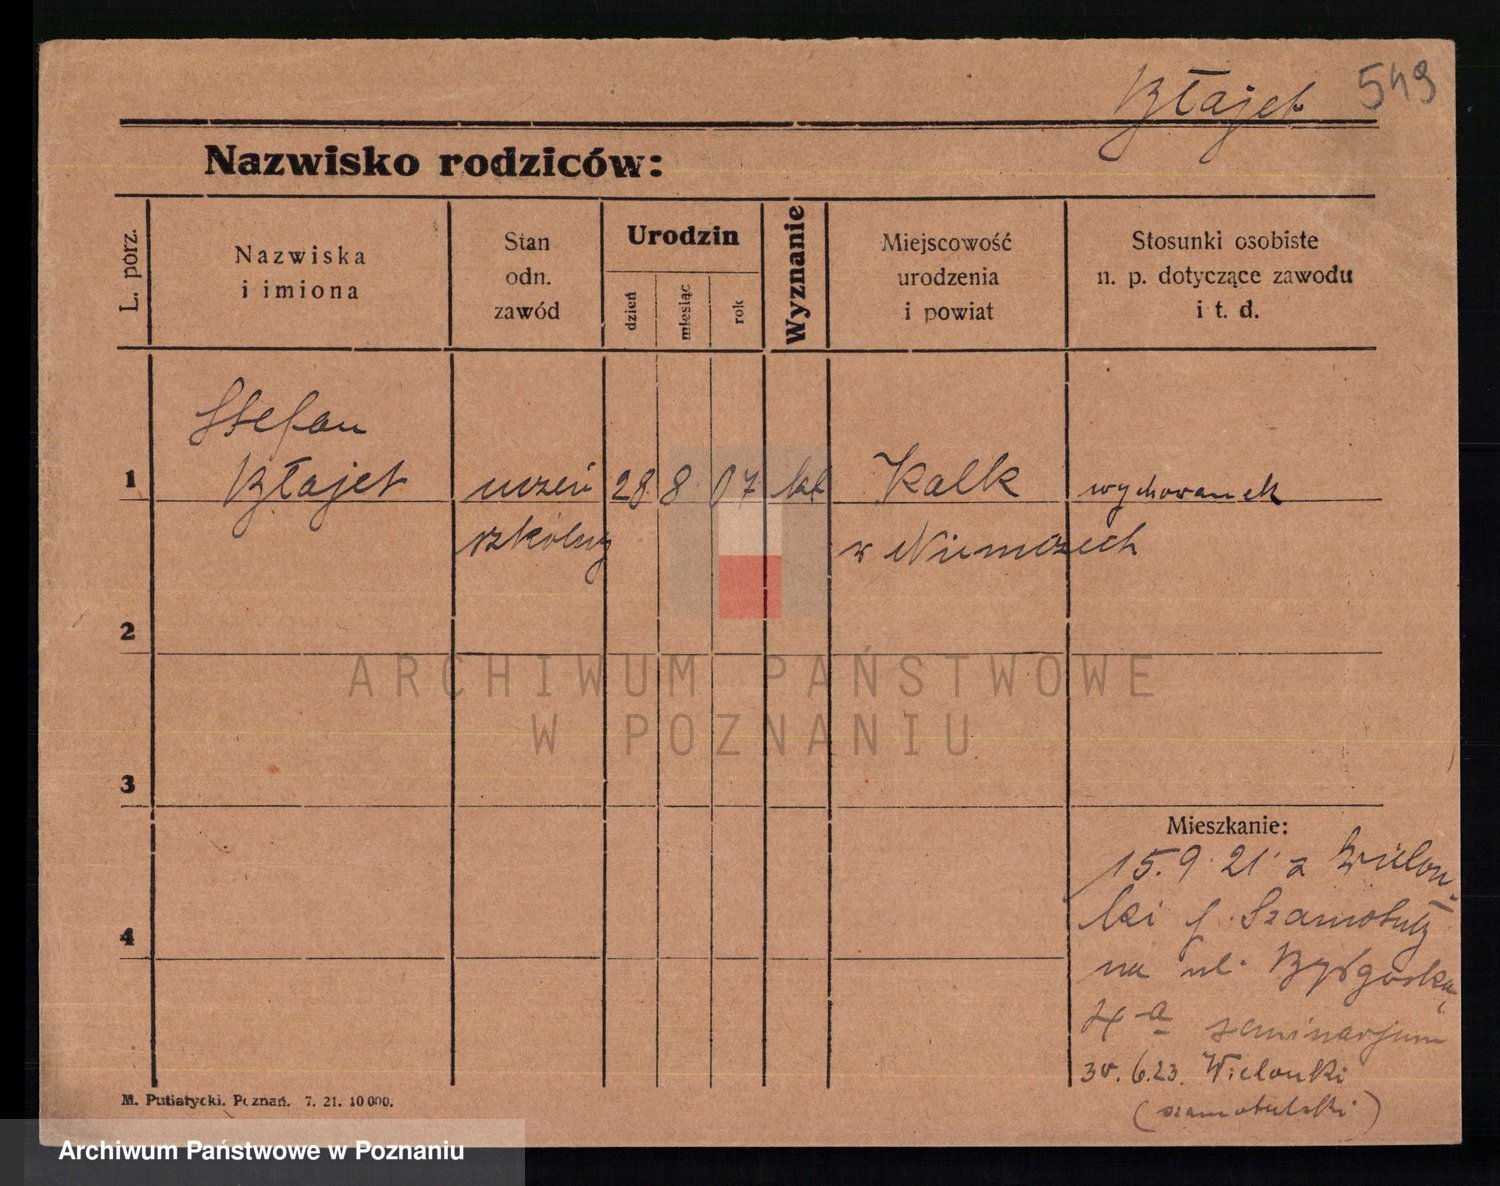 Błajet 549
Nazwisko rodziców:
L. porz.
Nazwiska
i imiona
Stan
odn.
zawód
Urodzin
dzień
miesiąc
rok
Wyznanie
Miejscowość
urodzenia
i powiat
Stosunki osobiste
n. p. dotyczące zawodu
i t. d.
Stefan
1 Błajet uczeń 28 8. 07 kat Kalk wychowanek
szkólny w Niemczech
2
3
4
ARCHIWUM PAŃSTWOWE
W POZNANIU
Mieszkanie:
15.9.21 z Wielon-
ki p. Szamotuły
na ul. Bydgoska,
4 a seminarjum
30.6.23. Wielonki
(szamotulski)
M. Putiatycki. Poznań. 7. 21. 10 000.
Archiwum Państwowe w Poznaniu